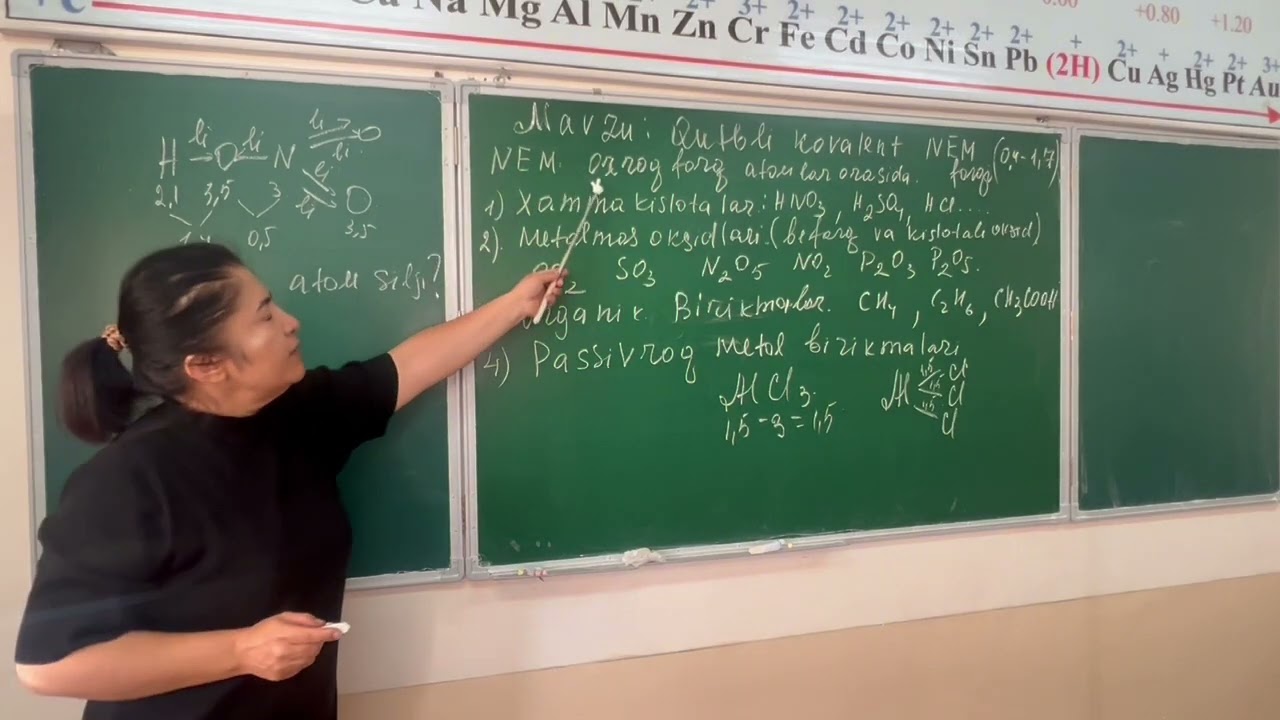 Na Mg Al Mn Zn Cr Fe Cd Co Ni Sn Pb (2H) Cu Ag Hg Pt Au
2+ 3+ 2+ 2+ 2+ 2+ 2+ 2+ + 2+ + 2+ 2+ 3+
+0.80 +1.20
H O N O
2,1 3,5 3 O
3,5
0,5
atom silji?
Mavzu: Qutbli kovalent NEM
NEM ozroq farq atomlar orasida. farqi (0,4-1,7)
1) Xamma kislotalar: HNO3, H2SO4, HCl....
2). Metalmas oksidlari. (befarq va kislotali oksid)
SO3 N2O5 NO2 P2O3 P2O5.
Organik Birikmalar. CH4, C2H6, CH3COOH
4) Passivroq metal birikmalari
AlCl3. Al Cl
1,5 Cl
1,5-3=1,5 Cl